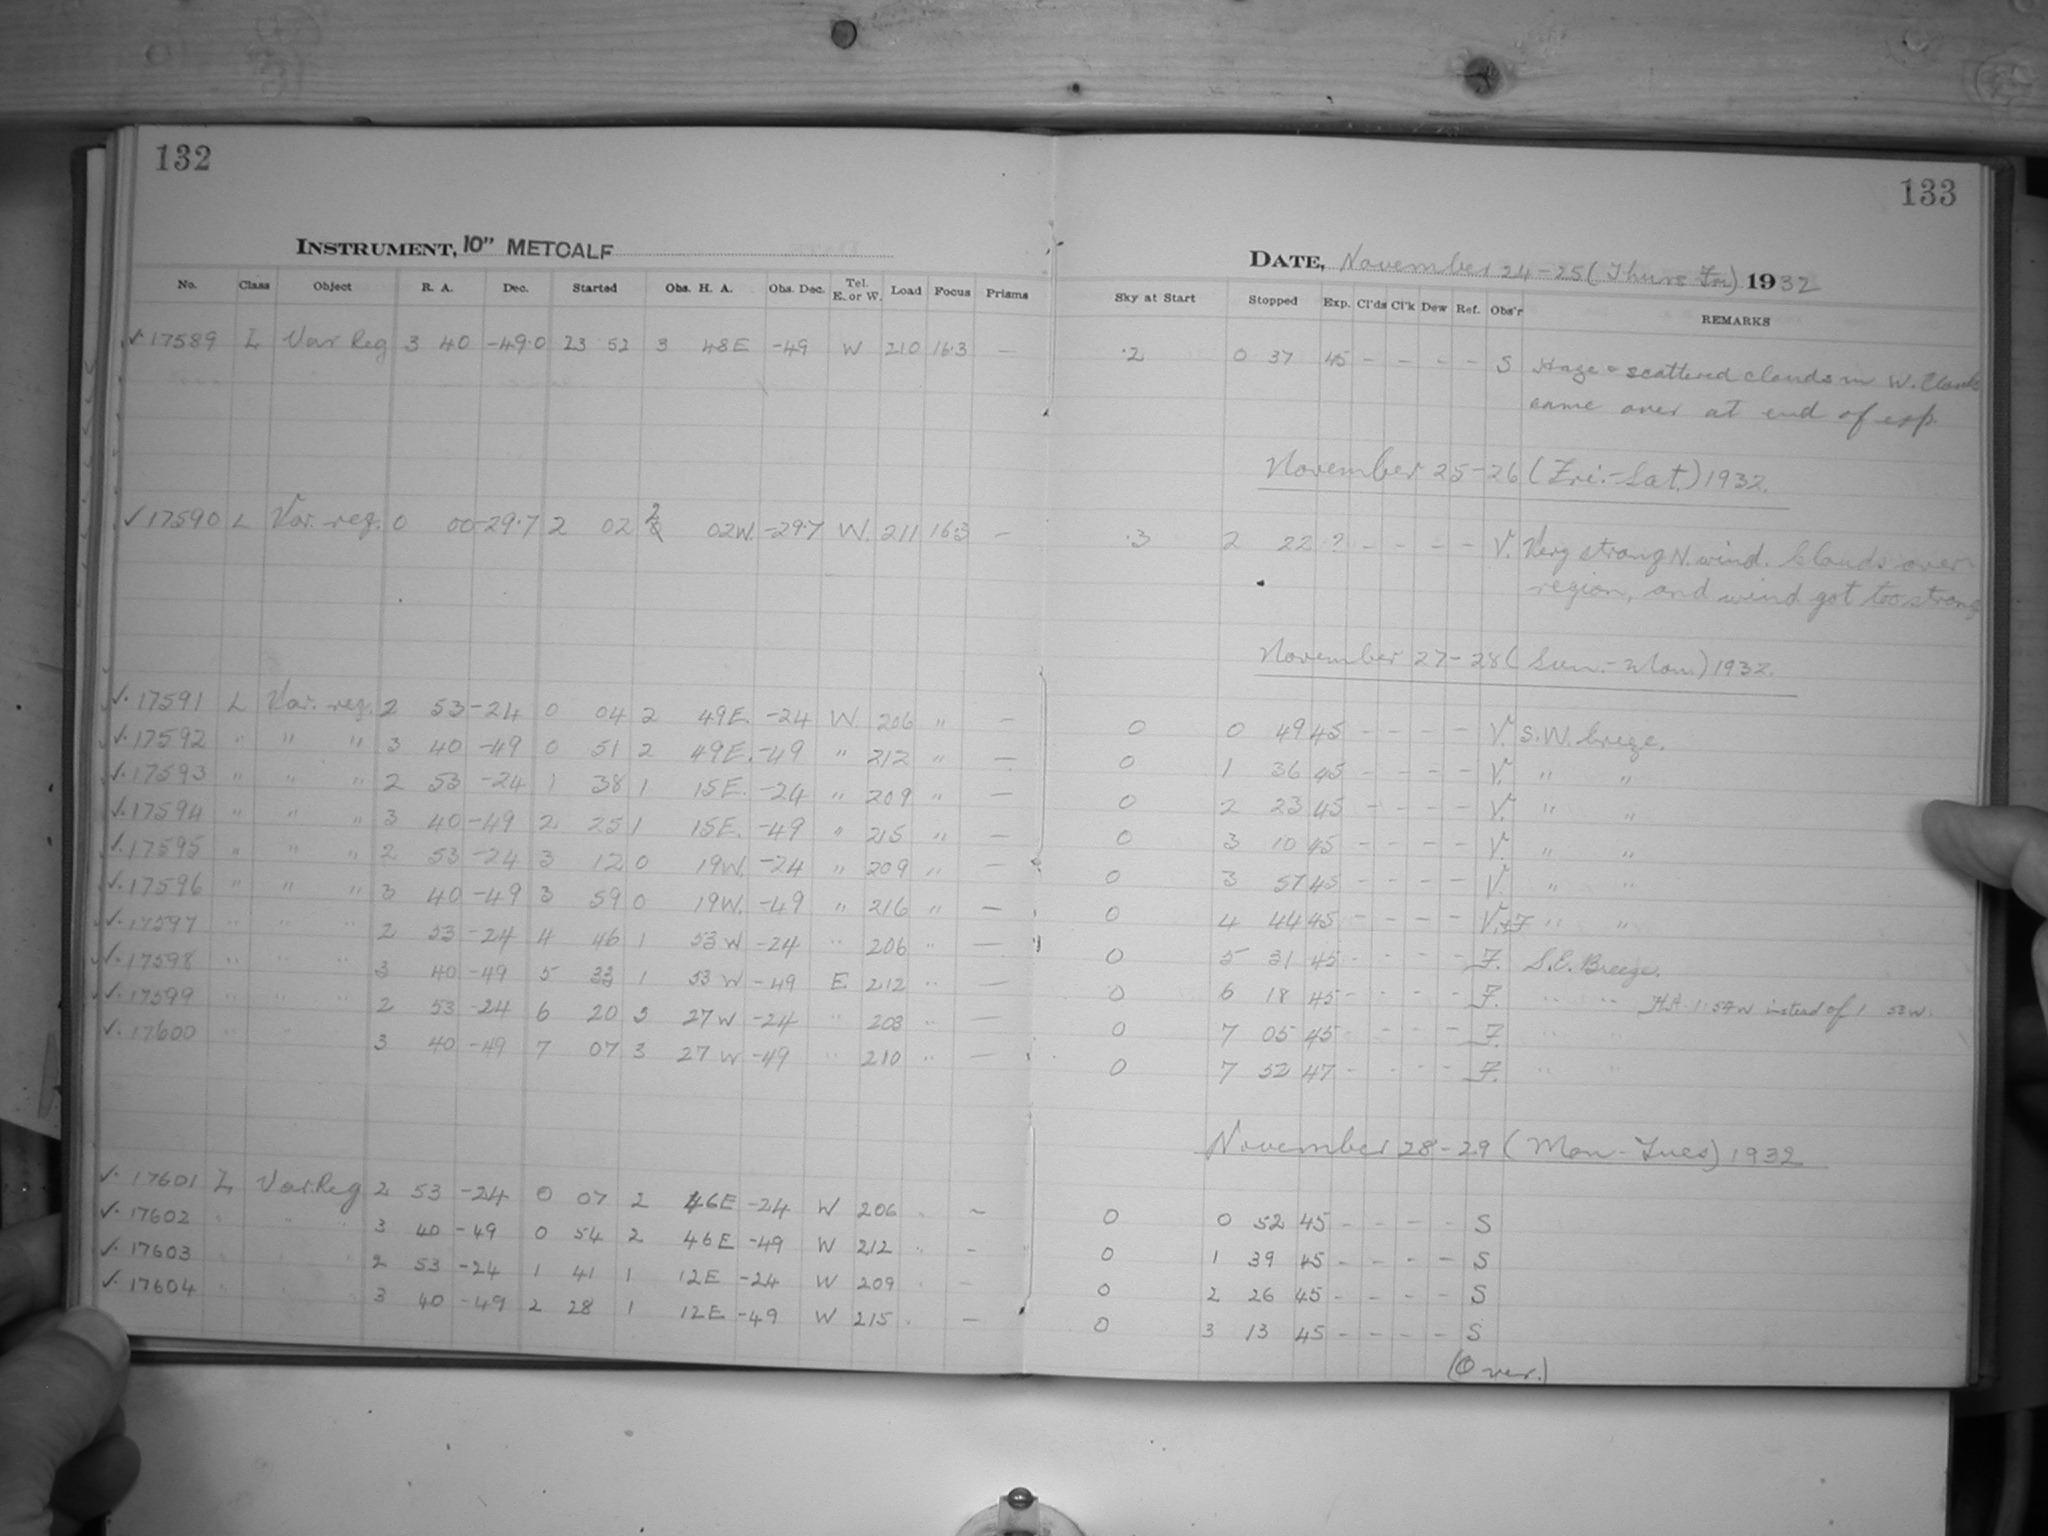 132
133
INSTRUMENT, 10" METCALF
DATE, November 24-25 (Thurs Fri) 1932
No. Class Object R. A. Dec. Started Obs. H. A. Obs. Dec. Tel. E. or W. Load Focus Prisms Sky at Start Stopped Exp. Cl'ds Cl'k Dew Ref. Obs'r REMARKS
✓ 17589 L Var Reg 3 40 -49.0 23 52 3 48E -49 W 210 16.3 — .2 0 37 45 - - - - S Haze & scattered clouds in W. Clouds
came over at end of exp.
November 25-26 (Fri.-Sat.) 1932.
✓ 17590 L Var. reg. 0 00 -29.7 2 02 2 02W. -29.7 W. 211 16.3 — .3 2 22 ? - - - - V. Very strong N. wind. Clouds over
region, and wind got too strong
November 27-28 (Sun.-Mon.) 1932.
✓. 17591 L Var. reg. 2 53 -24 0 04 2 49E. -24 W. 206 " — 0 0 49 45 - - - - V. S.W. breeze.
✓. 17592 " " " 3 40 -49 0 51 2 49E. -49 " 212 " — 0 1 36 45 - - - - V. " "
✓. 17593 " " " 2 53 -24 1 38 1 15E. -24 " 209 " — 0 2 23 45 - - - - V. " "
✓. 17594 " " " 3 40 -49 2 25 1 15E. -49 " 215 " — 0 3 10 45 - - - - V. " "
✓. 17595 " " " 2 53 -24 3 12 0 19W. -24 " 209 " — 0 3 57 45 - - - - V. " "
✓. 17596 " " " 3 40 -49 3 59 0 19W. -49 " 216 " — 0 4 44 45 - - - - V.+F " "
✓. 17597 " " " 2 53 -24 4 46 1 53W -24 " 206 " — 0 5 31 45 - - - - F. S.E. Breeze.
✓. 17598 " " " 3 40 -49 5 33 1 53W -49 E 212 " — 0 6 18 45 - - - - F. " " H.A. 1.54W instead of 1 53W.
✓. 17599 " " " 2 53 -24 6 20 3 27W -24 " 203 " — 0 7 05 45 - - - - F. " "
✓. 17600 " " 3 40 -49 7 07 3 27W -49 " 210 " — 0 7 52 47 - - - - F. " "
November 28-29 (Mon-Tues) 1932
✓. 17601 L Var. Reg 2 53 -24 0 07 2 46E -24 W 206 " — 0 0 52 45 - - - - S
✓. 17602 " " " 3 40 -49 0 54 2 46E -49 W 212 " - 0 1 39 45 - - - - S
✓. 17603 " " " 2 53 -24 1 41 1 12E -24 W 209 " — 0 2 26 45 - - - - S
✓. 17604 " " " 3 40 -49 2 28 1 12E -49 W 215 " — 0 3 13 45 - - - - S
(Over.)